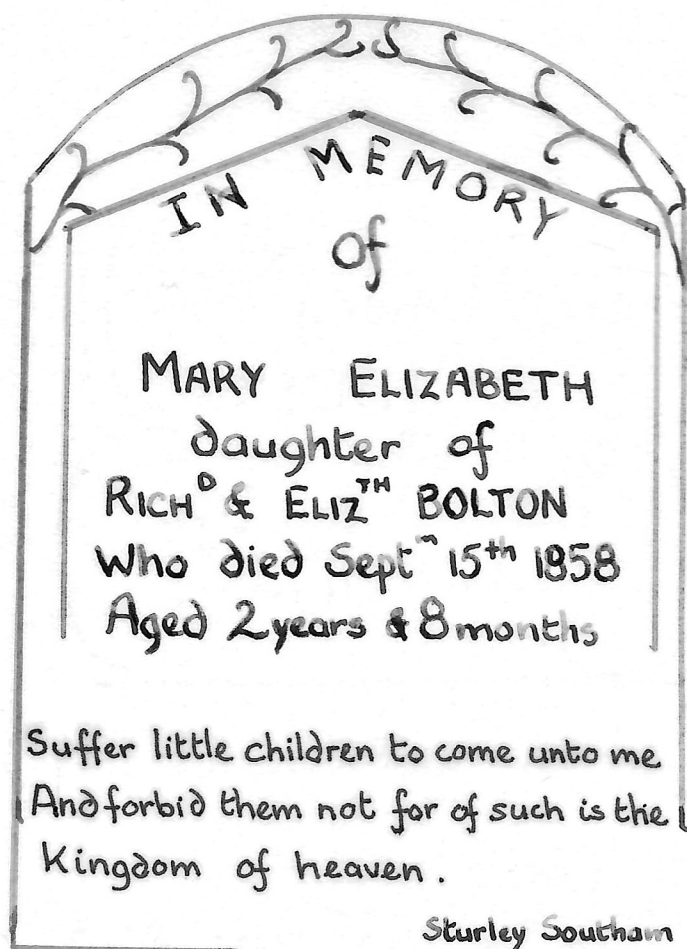 IN MEMORY
of
MARY ELIZABETH
daughter of
RICHᴰ & ELIZᵀᴴ BOLTON
Who died Septᵐ 15ᵗʰ 1858
Aged 2 years & 8 months
Suffer little children to come unto me
And forbid them not for of such is the
Kingdom of heaven.
Sturley Southam